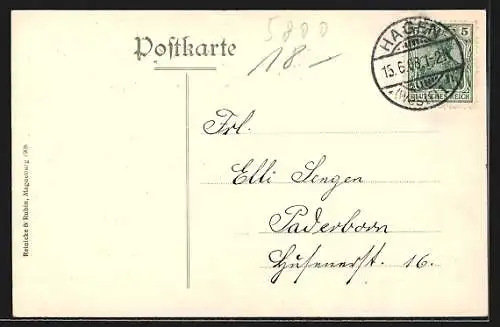 5800
18.-
Postkarte
HAGEN
15.6.08.1-2N
*(WESTF)
5
DEUTSCHES REICH
Frl.
Elli Sengen
Paderborn
Husenerst. 16.
Reinicke & Rubin, Magdeburg 1908